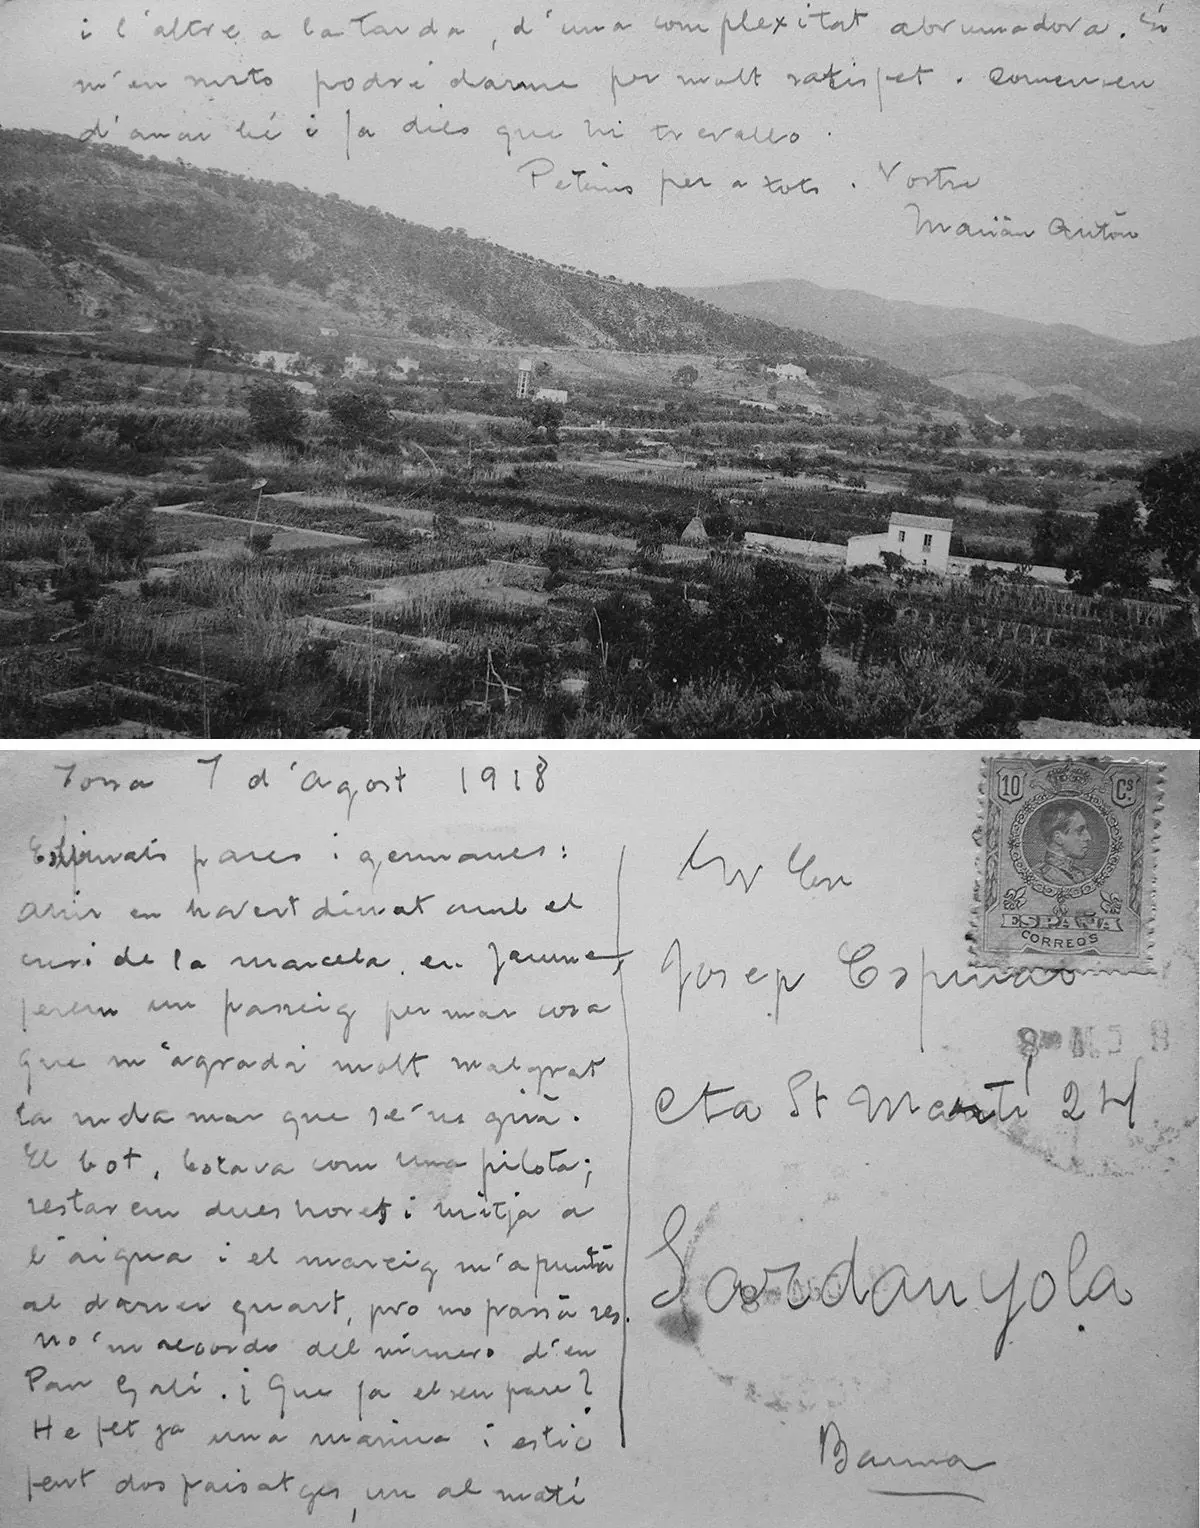 i l'altre a la tarda, d'una complexitat abrumadora. Si
m'en surto podré darme per molt satisfet. Comencen
d'anar bé i ja dies que hi trevallo.
Petons per a tots. Vostre
Marián Antón
Tossa 7 d'Agost 1918
Estimats pares i germanes:
Ahir en havent dinat amb el
cusí de la marcela, en Jaume,
ferem un passeig per mar cosa
que m'agradá molt malgrat
la mala mar que se'ns girá.
El bot, botava com una pilota;
restarem dues hores i mitja a
l'aigua i el mareig m'apuntá
al darrer quart, pro no passá res.
no'm recordo del número d'en
Pau Galí. ¡Que fa el seu pare?
He fet ja una marina i estic
fent dos paisatges, un al matí
Josep Espinas
Cta St Martí 24
Sardanyola
Barna
10 Cs
ESPAÑA
CORREOS